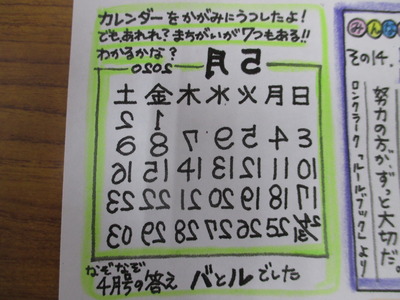 カレンダーをかがみにうつしたよ!
でも、あれれ?まちがいが7つもある!!
わかるかな?
2020
5月
土金木水火月日
2 1
9 8 7 6 5 4 3
16 15 14 13 12 11 10
23 22 21 20 19 18 17
30 29 28 27 26 25 24/31
なぞなぞ
4月号の答え バトルでした
みんな
その14.
努力の方が、ずっと大切だ。
ロンクラーク「ルールブック」より